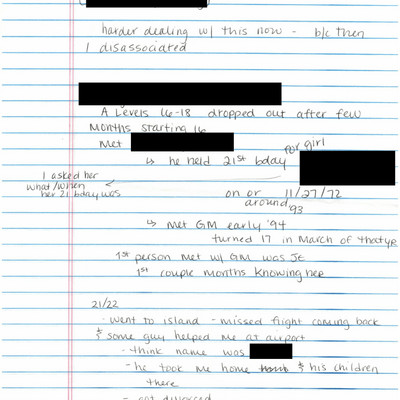 harder dealing w/ this now - b/c then
I disassociated
A Levels 16-18 dropped out after few
months starting 16
Met
for girl
↳ he held 21st bday
I asked her
what/when
her 21 bday was
on or 11/27/72
around '93
↳ met GM early '94
turned 17 in March of that yr
1st person met w/ GM was JE
1st couple months knowing her
21/22
- went to island - missed flight coming back
& some guy helped me at airport
- think name was
- he took me home & his children
there
- got divorced